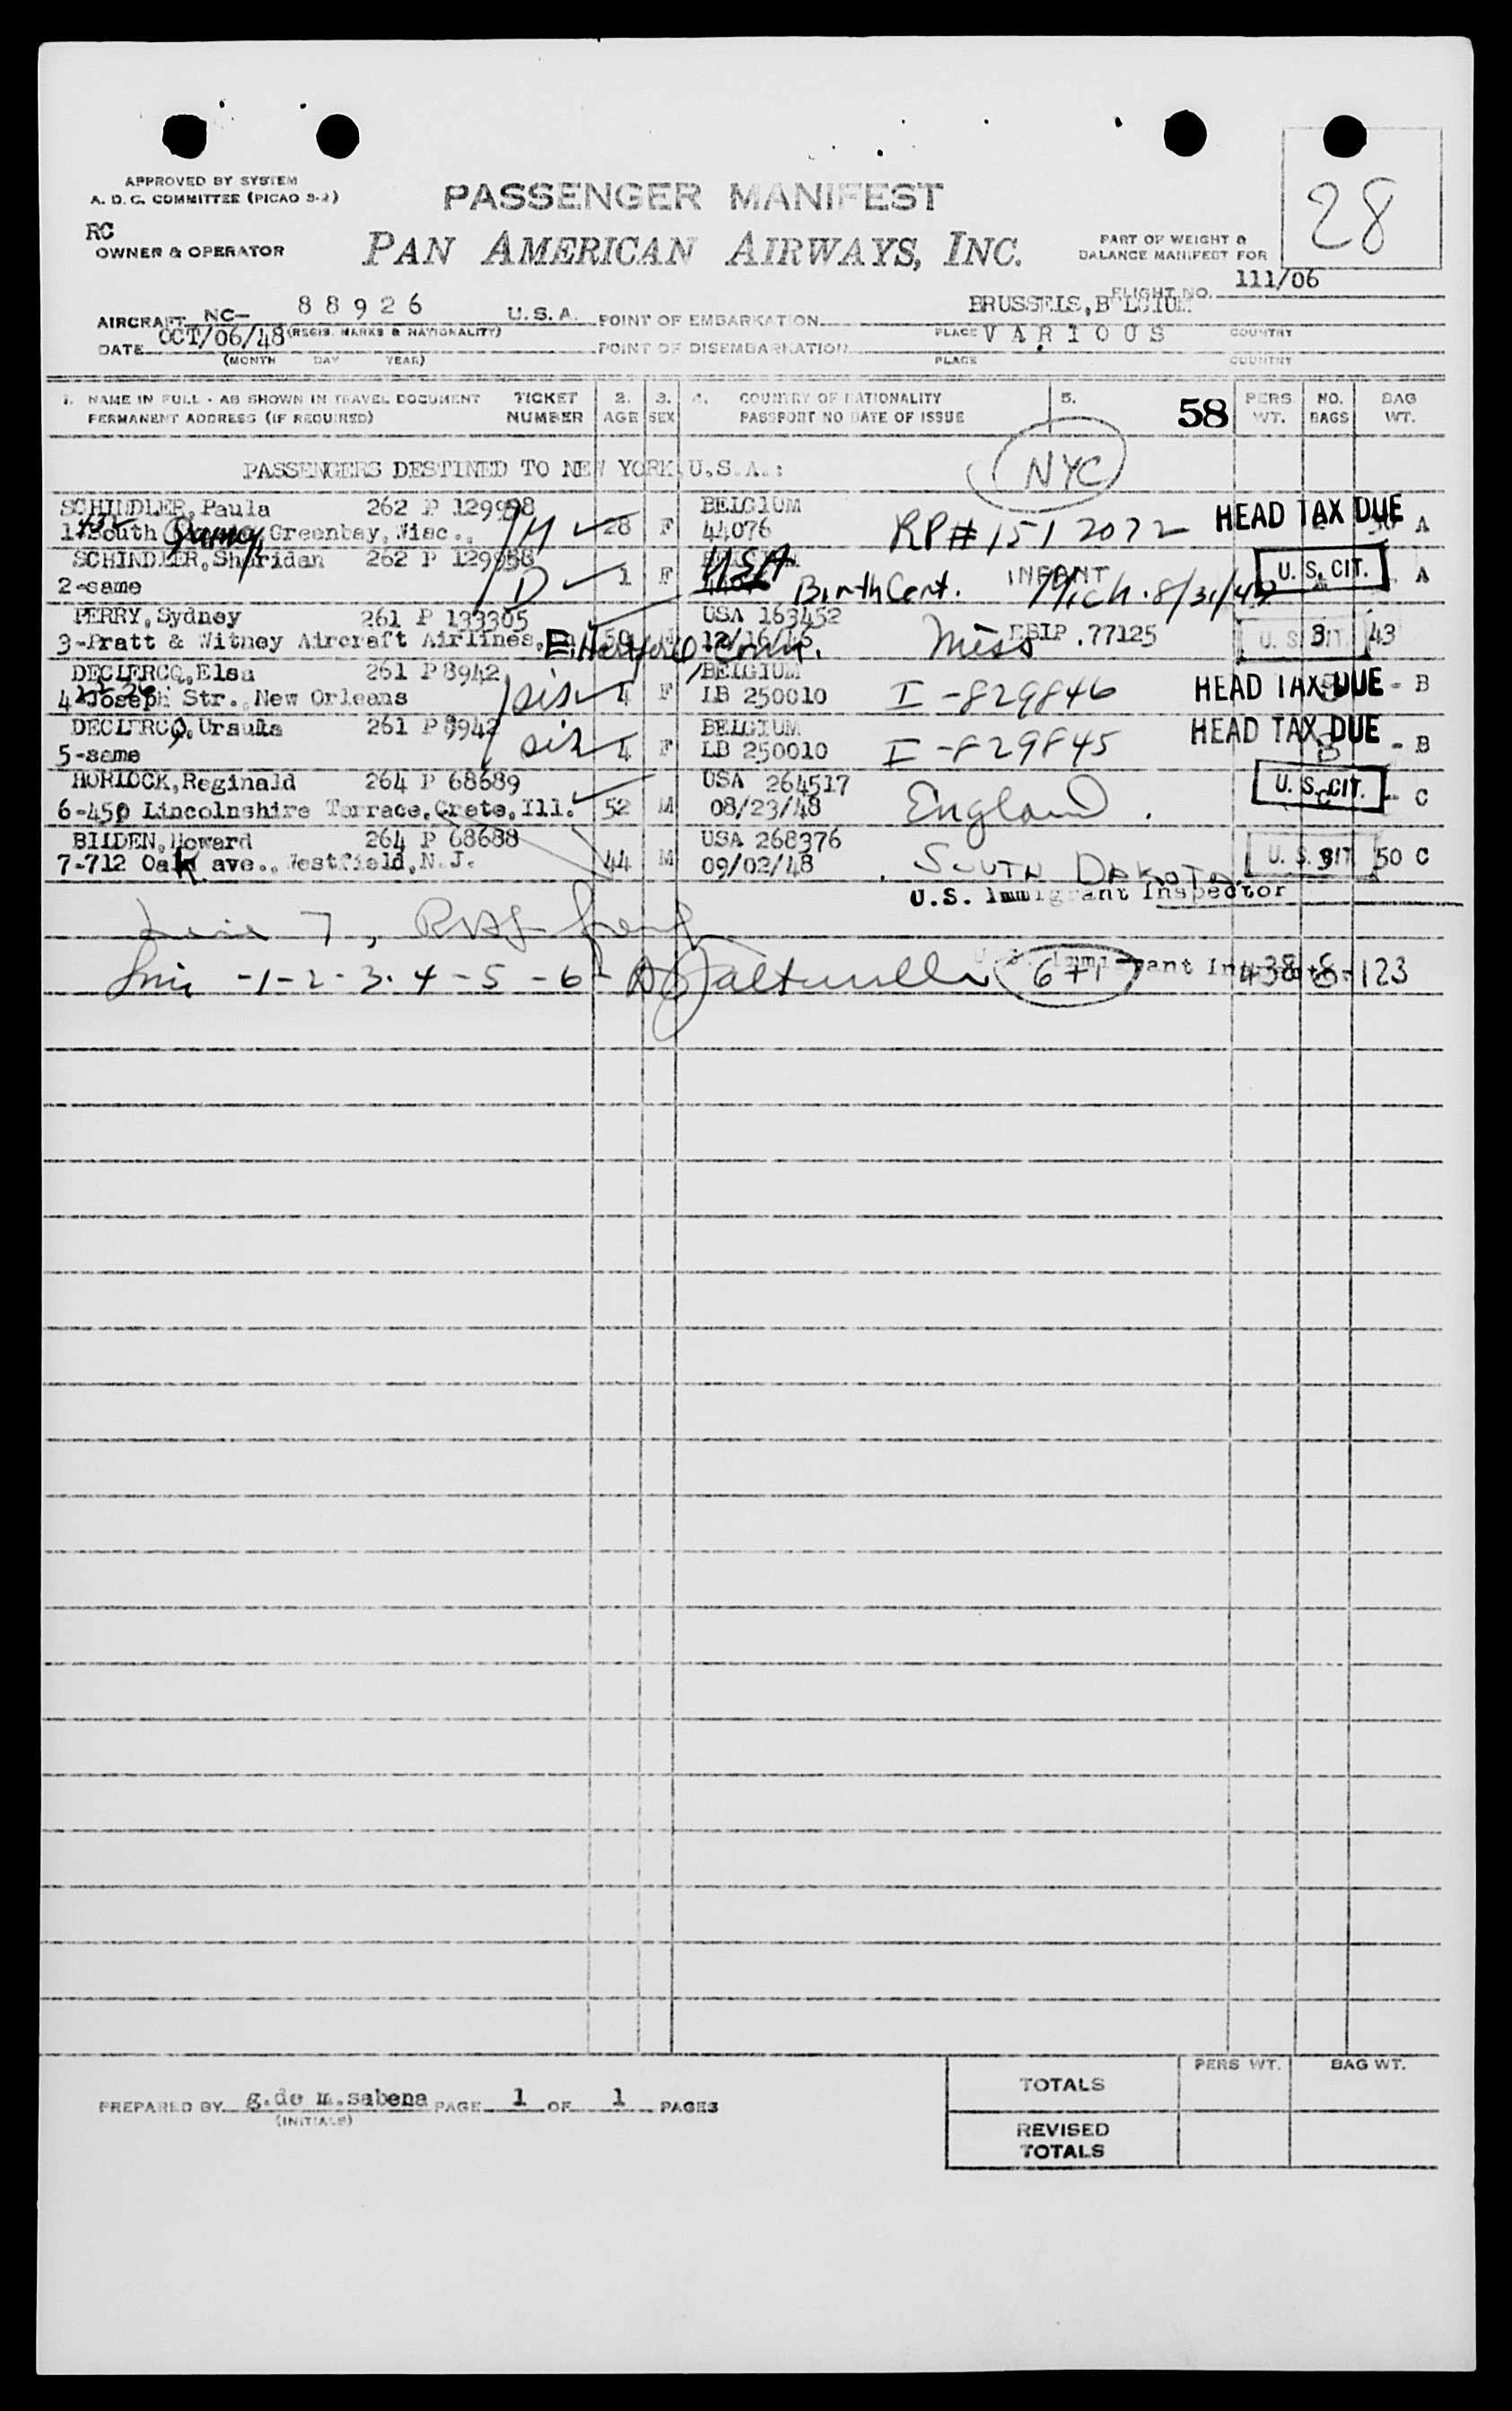 APPROVED BY SYSTEM
A. D. C. COMMITTEE (PICAO S-2)
RC
OWNER & OPERATOR
PASSENGER MANIFEST
PAN AMERICAN AIRWAYS, INC.
28
PART OF WEIGHT &
BALANCE MANIFEST FOR
FLIGHT NO. 111/06
AIRCRAFT NC- 88926 U.S.A. POINT OF EMBARKATION BRUSSELS, B LGIUM
(REGIS. MARKS & NATIONALITY) PLACE COUNTRY
DATE OCT/06/48 POINT OF DISEMBARKATION VARIOUS
(MONTH DAY YEAR) PLACE COUNTRY
1. NAME IN FULL - AS SHOWN IN TRAVEL DOCUMENT TICKET 2. 3. 4. COUNTRY OF NATIONALITY 5. PERS. NO. BAG
PERMANENT ADDRESS (IF REQUIRED) NUMBER AGE SEX PASSPORT NO DATE OF ISSUE 58 WT. BAGS WT.
PASSENGERS DESTINED TO NEW YORK, U.S.A.: NYC
SCHINDLER, Paula 262 P 129998 BELGIUM HEAD TAX DUE
1-South Greenbay, Wisc., M 28 F 44076 RP# 1512022 A
SCHINDLER, Sheridan 262 P 129998 USA
2-same D 1 F Birth Cent. INFANT Mich. 8/31/47 U. S. CIT. A
PERRY, Sydney 261 P 133305 USA 163452
3-Pratt & Witney Aircraft Airlines, E. Hartford Conn. 50 12/16/46 Miss EBIP.77125 U. S. CIT. 3 43
DECLERCQ, Elsa 261 P 8942 BELGIUM
4- Joseph Str. New Orleans sis 4 F LB 250010 I-829846 HEAD TAX DUE - B
DECLERCQ, Ursula 261 P 8942 BELGIUM HEAD TAX DUE
5-same sis 4 F LB 250010 I-829845 - B
HORLOCK, Reginald 264 P 68689 USA 264517 U. S. CIT.
6-450 Lincolnshire Terrace, Crete, Ill. 52 M 08/23/48 England. - C
BILDEN, Howard 264 P 68688 USA 268376
7-712 Oak ave., Westfield, N.J. 44 M 09/02/48 SOUTH DAKOTA U. S. CIT. 3 50 C
U.S. Immigrant Inspector
7,
-1-2-3-4-5-6- 6+1 U.S. Immigrant Inspector 438 8 123
PREPARED BY g.de m.sabena PAGE 1 OF 1 PAGES
(INITIALS)
PERS WT. BAG WT.
TOTALS
REVISED
TOTALS